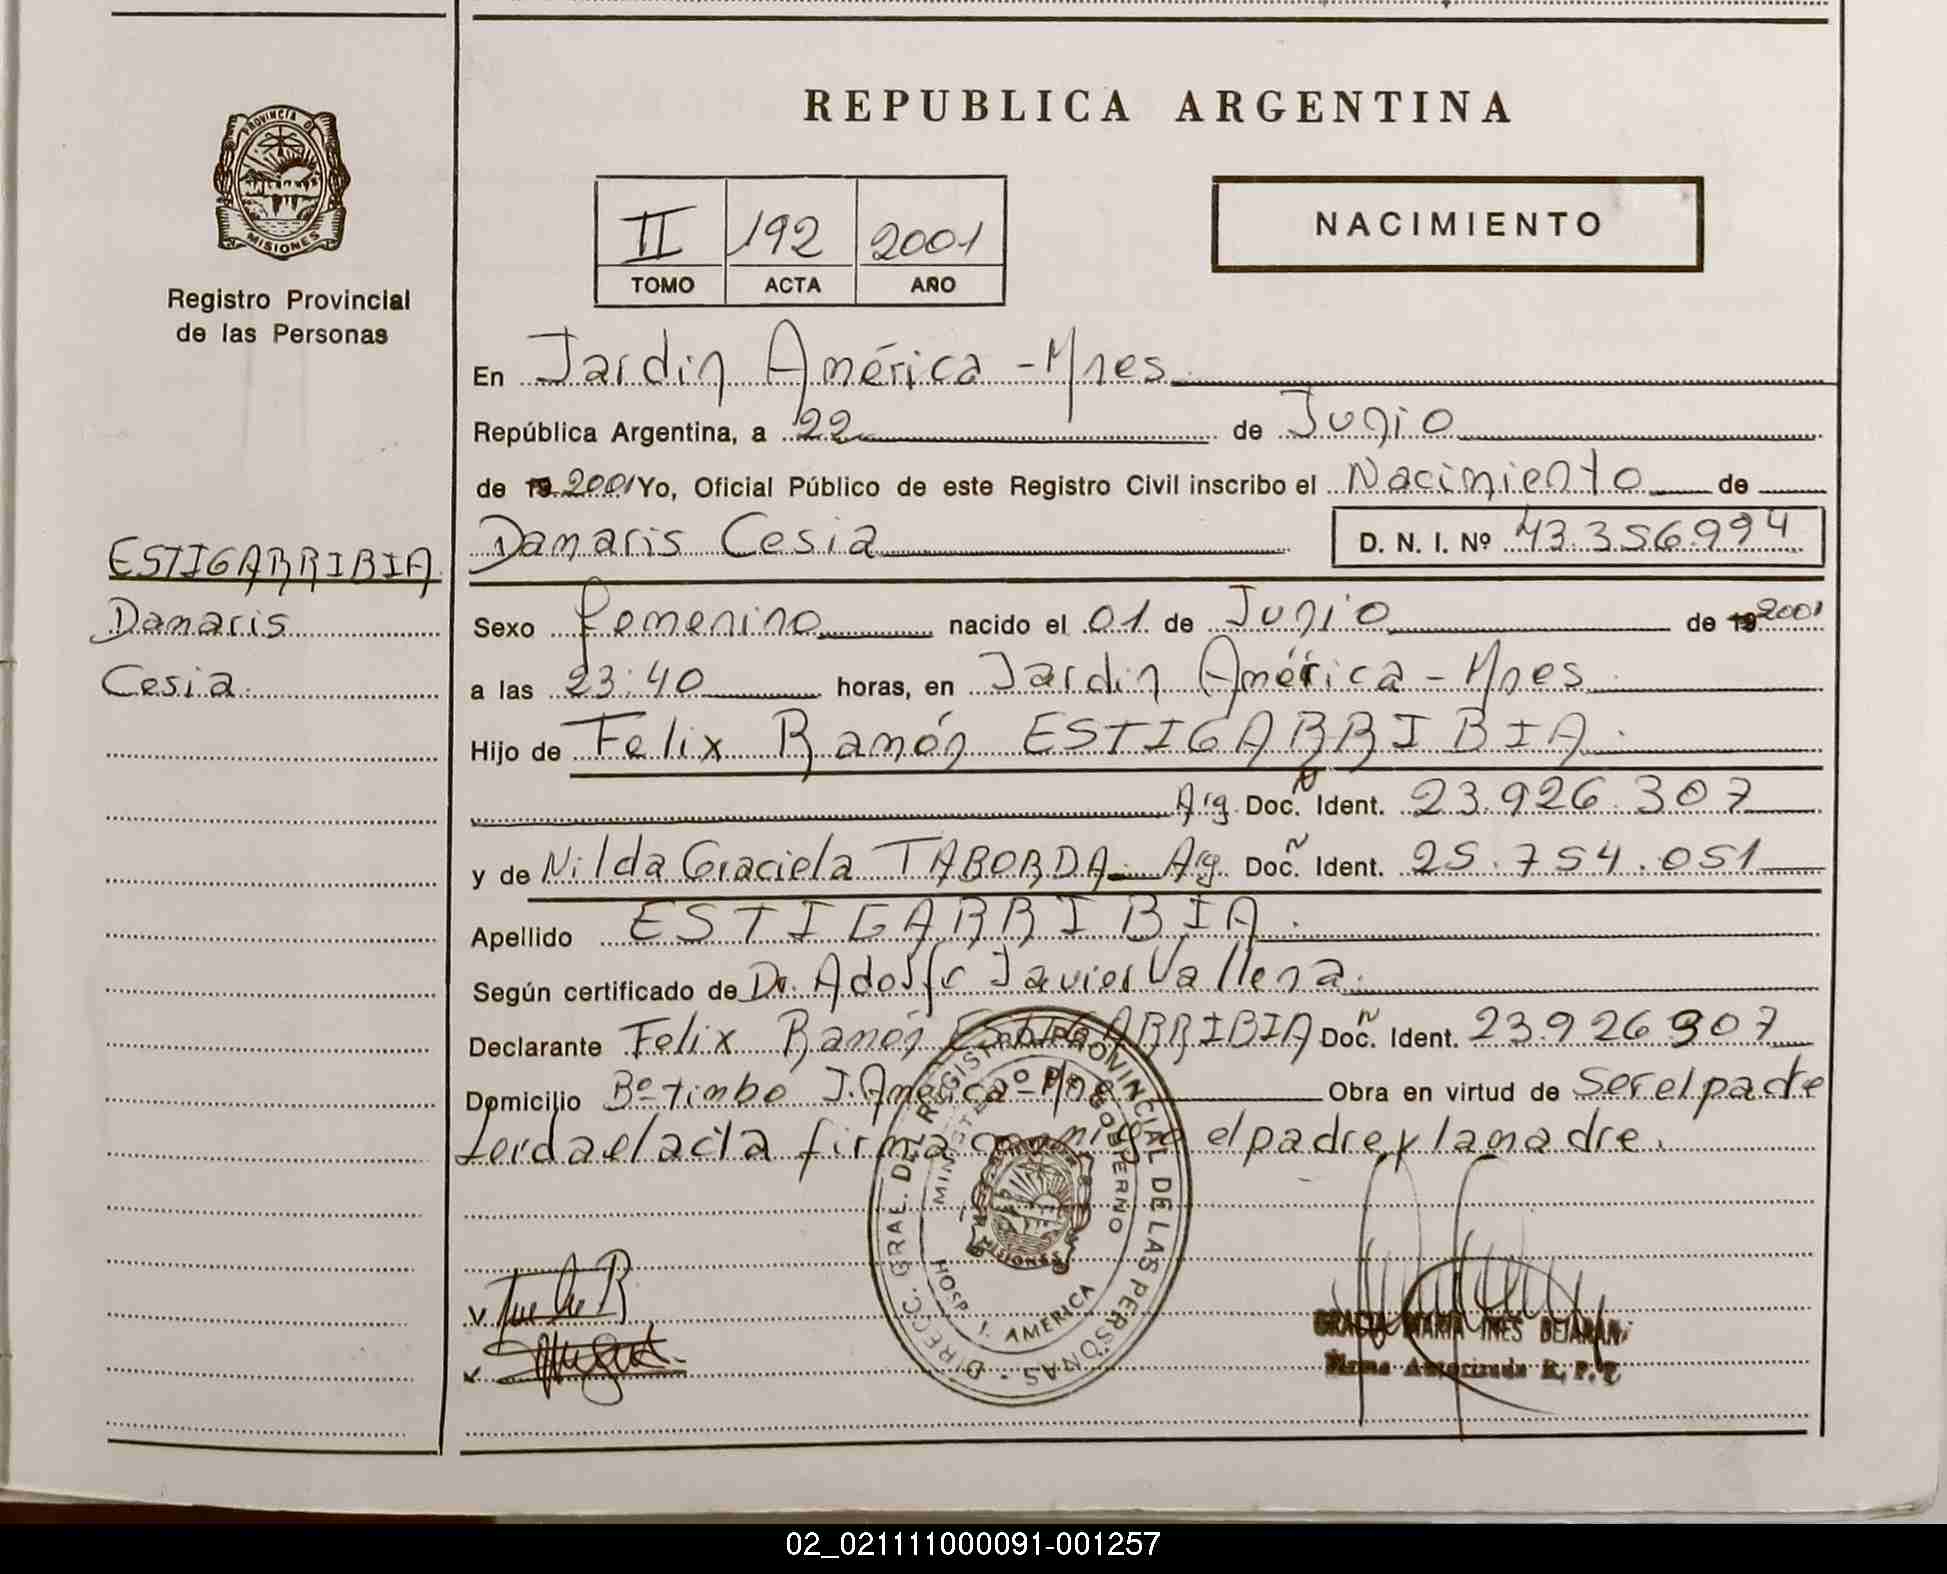 PROVINCIA D
MISIONES
Registro Provincial
de las Personas
ESTIGARRIBIA
Damaris
Cesia
REPUBLICA ARGENTINA
II 192 2001
TOMO ACTA AÑO
NACIMIENTO
En Jardin América - Mnes
República Argentina, a 22 de Junio
de 19 2001 Yo, Oficial Público de este Registro Civil inscribo el Nacimiento de
Damaris Cesia D. N. I. Nº 43.356.994
Sexo femenino nacido el 01 de Junio de 19 2001
a las 23:40 horas, en Jardin América - Mnes
Hijo de Felix Ramón ESTIGARRIBIA.
Arg. Doc. N Ident. 23.926.307
y de Nilda Graciela TABORDA. Arg. Doc. N Ident. 25.754.051
Apellido ESTIGARRIBIA.
Según certificado de Dr. Adolfo Javier Vallena.
Declarante Felix Ramón ESTIGARRIBIA Doc. N Ident. 23.926307
Domicilio Bº timbo J. América - Mnes Obra en virtud de ser el padre
Leida el acta firma conmigo el padre y la madre.
DIRECC. GRAL. DEL REGISTRO PROVINCIAL DE LAS PERSONAS.
MINISTERIO DE GOBIERNO
MISIONES
HOSP. J. AMERICA
GRACIA MARIA INES BEJARAN
Firma Autorizada R. P. P.
02_021111000091-001257